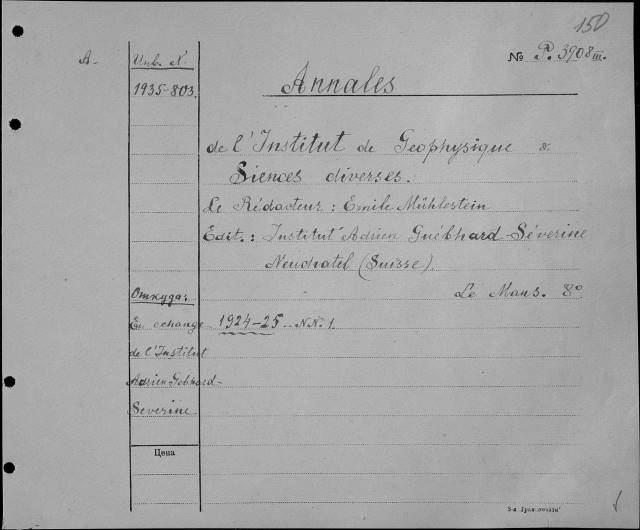 150
А.
Инв. N.
1935-803.
№ P. 3908 III.
Annales
de l'Institut de Geophysique &
Siences diverses.
Le Rédacteur : Emile Mühlestein
Édit. : Institut Adrien Guébhard-Séverine
Neuchatel (Suisse).
Le Mans. 8°
Откуда:
En echange
de l'Institut
Adrien Gebhard-
Severine
1924-25. NN. 1.
Цена